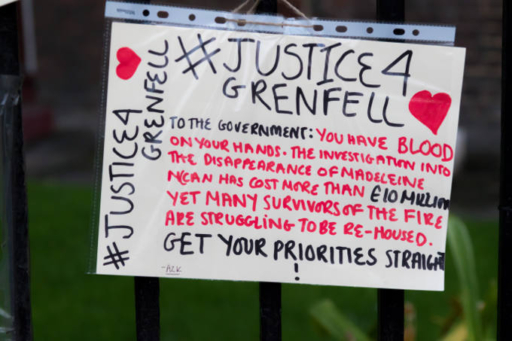 #JUSTICE4
GRENFELL
#JUSTICE4
GRENFELL
TO THE GOVERNMENT: YOU HAVE BLOOD
ON YOUR HANDS. THE INVESTIGATION INTO
THE DISAPPEARANCE OF MADELEINE
MCCAN HAS COST MORE THAN £10 MILLION
YET MANY SURVIVORS OF THE FIRE
ARE STRUGGLING TO BE RE-HOUSED.
GET YOUR PRIORITIES STRAIGHT
!